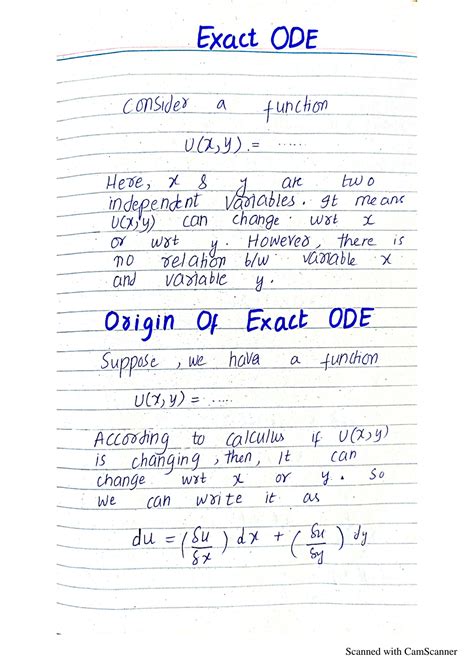 Exact ODE
Consider a function
U(x,y) = ......
Here, x & y are two
independent variables. It means
U(x,y) can change wrt x
or wrt y. However, there is
no relation b/w variable x
and variable y.
Origin Of Exact ODE
Suppose, we hava a function
U(x,y) = .....
According to calculus if U(x,y)
is changing, then, it can
change wrt x or y. So
we can write it as
du = (δu/δx) dx + (δu/δy) dy
Scanned with CamScanner